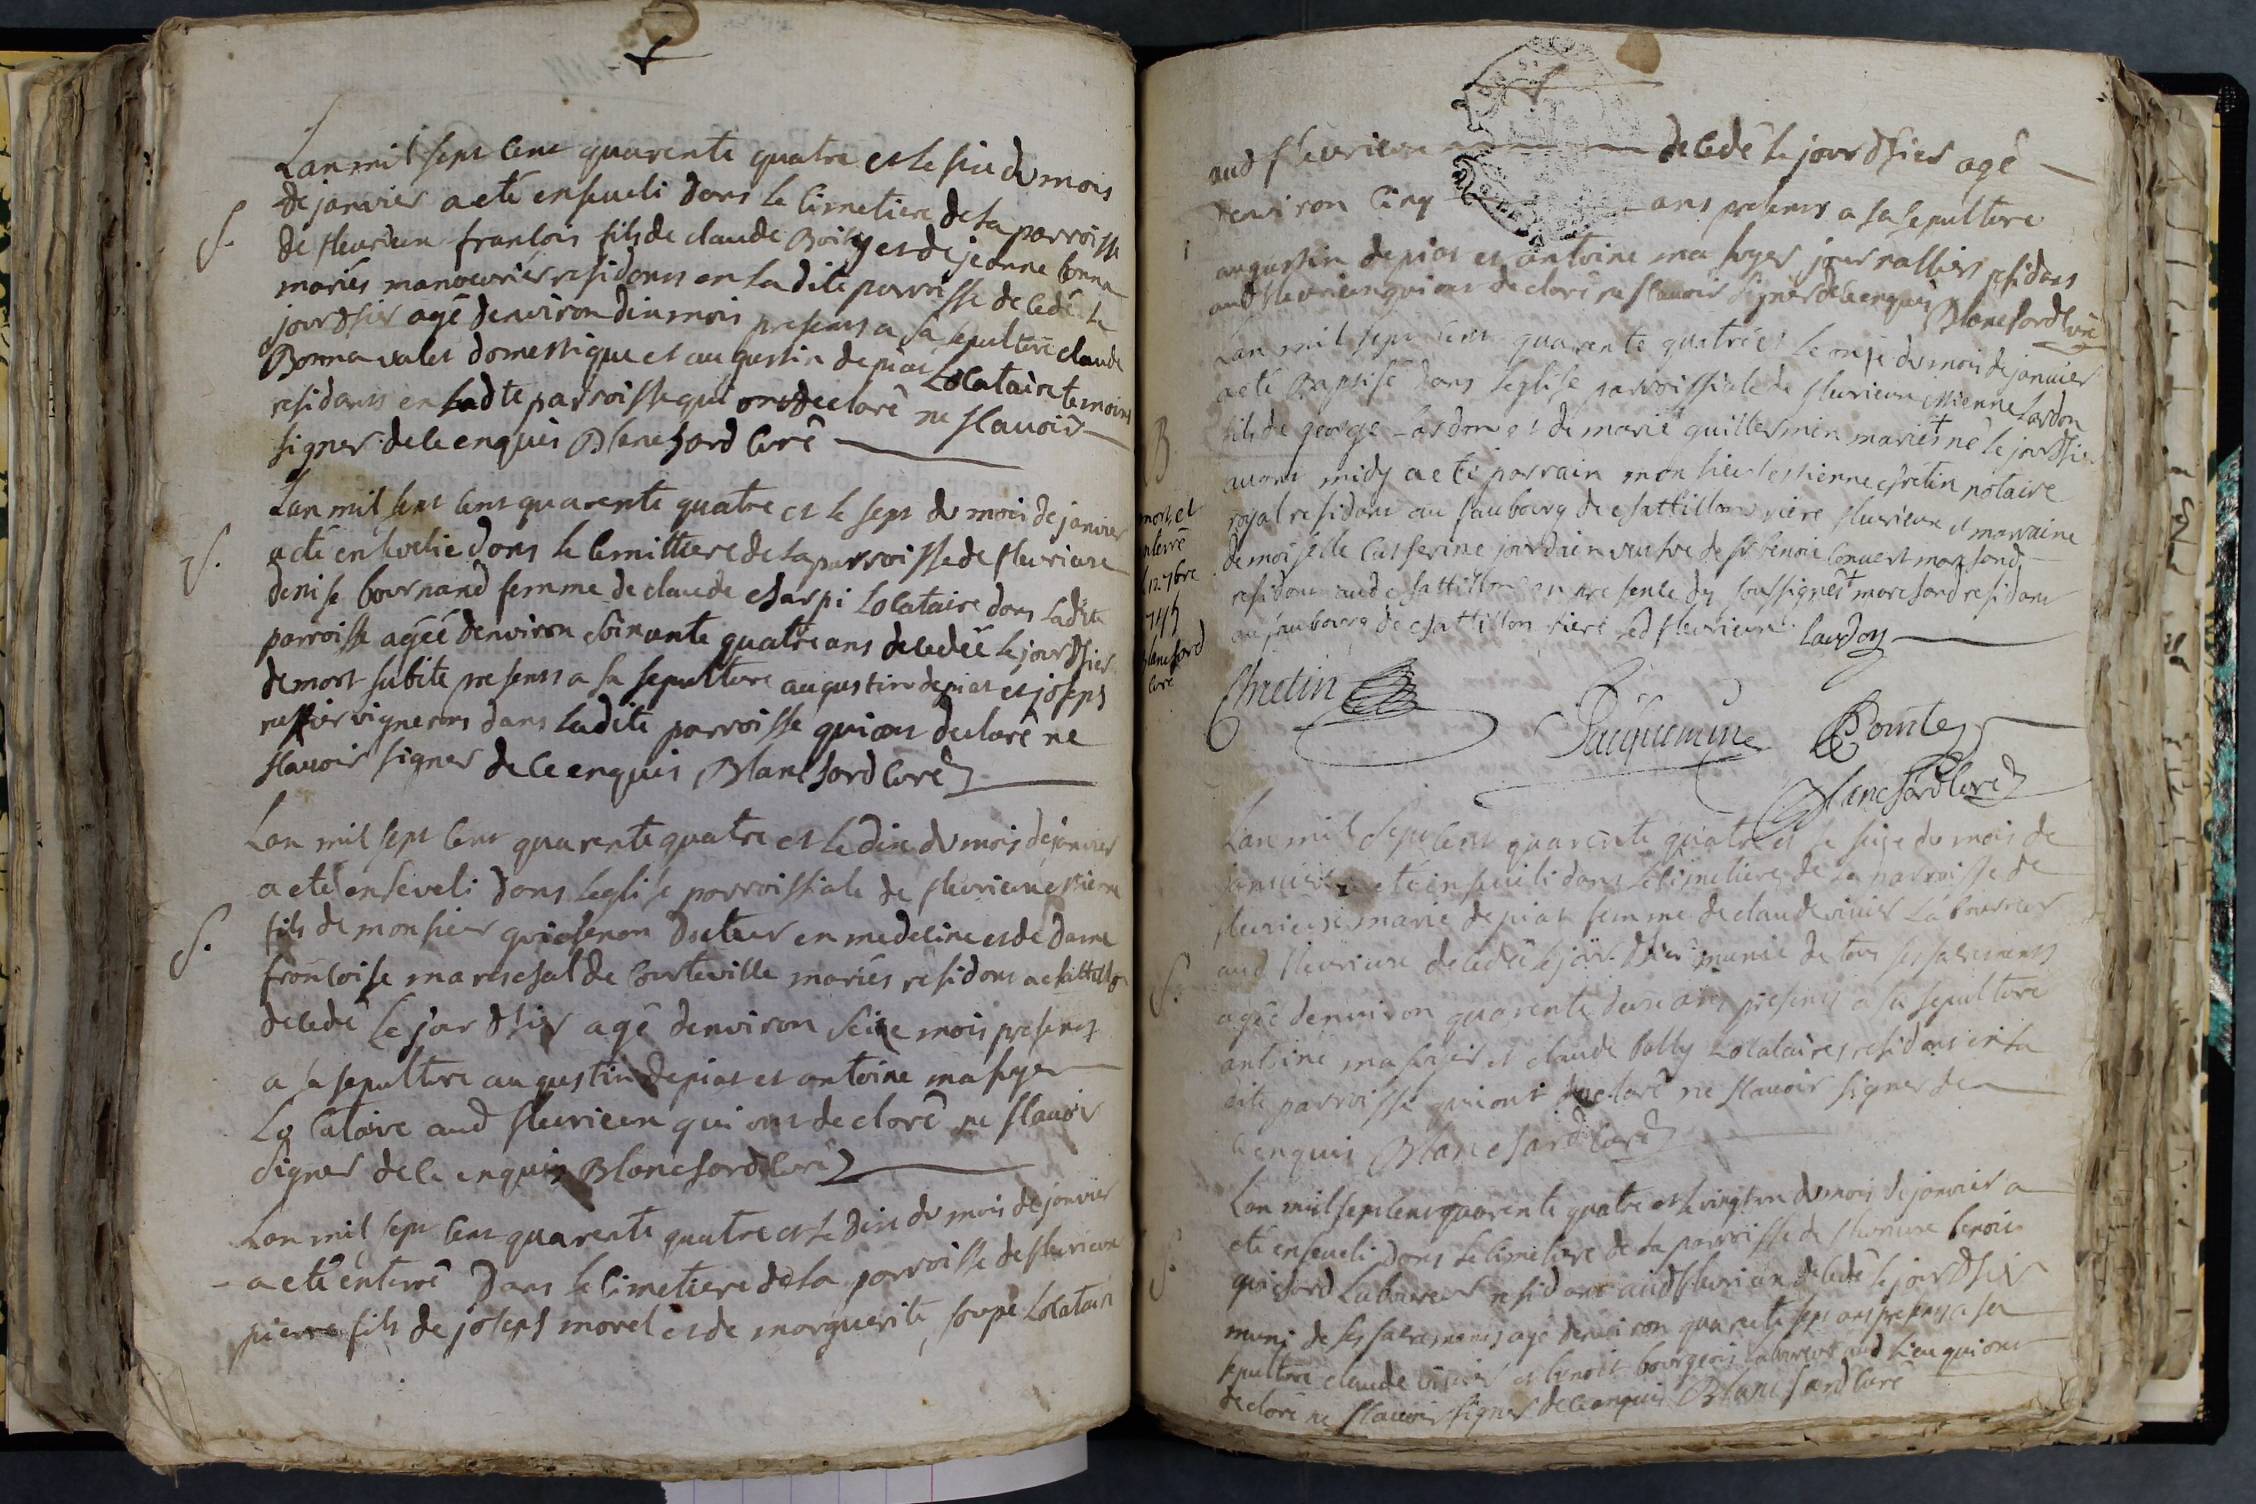 Lan mil sept cent quarente quatre et le six du mois
de janvier a eté enseveli dans le cimetiere de la parroisse
S.
de fleurieux francois fils de claude Boissy et de jeanne bonna
mariés manoeuvrier residants en la dite parroisse decedé le
jour dhier agé denviron dix mois presents a sa sepulture claude
Bonna valet domestique et augustin depias Locataire temoins
residants en ladte parroisse qui ont declaré ne scavoir
signer de ce enquis Blanchard curé
Lan mil sept cent quarente quatre et le sept du mois de janvier
S.
a eté ensevelie dans le cimittiere de la parroisse de fleurieux
denise bournand femme de claude charpi Locataire dans ladite
parroisse agéé denviron soixante quatre ans decedéé le jour dhier
de mort subite presents a sa sepulture augustin depias et joseph
vignerons dans ladite parroisse qui ont declaré ne
scavoir signer de ce enquis Blanchard curé
Lan mil sept cent quarente quatre et le dix du mois de janvier
a eté enseveli dans leglise parroissiale de fleurieux estienne
S.
fils de monsieur guichenon docteur en medecine et de dame
francoise mareschal de courteville mariés residans a chattillon
decedé le jour dhier agé denviron seize mois presents
a sa sepulture augustin depias et antoine mahuyer
Locataire aud fleurieux qui ont declaré ne scavoir
signer de ce enquis Blanchard curé
Lan mil sept cent quarente quatre et le dix du mois de janvier
a eté enterré dans le cimetiere de la parroisse de fleurieux
pierre fils de joseph morel et de marguerite soupe Locataire
aud fleurieux decedé le jour dhier agé
denviron cinq ans presents a sa sepulture
augustin depias et antoine mahuyer journallier residans
aud fleurieux qui ont declaré ne scavoir signer de ce enquis Blanchard curé
Lan mil sept cent quarente quatre et le onze du mois de janvier
a eté Baptisé dans leglise parroissiale de fleurieux estienne Lardon
B
fils de george Lardon et de marie guillermin mariés né le jour dhier
avant midy a eté parrain monsieur estienne chretin notaire
royal residant au faubourg de chattillon riere fleurieux et marraine
demoiselle Catherine jourdain veufve de sr benoit convert marchand
residant aud chattillon en presence des soussignés marchand residans
au faubourg de chattillon riere led fleurieux Lardon
mort et
enterré
le 12. 7bre
1745
Blanchard
curé
Chretin
Jacquemin
Comte
Blanchard curé
Lan mil sept cent quarente quatre et le seize du mois de
janvier a eté ensevelie dans le cimetiere de la parroisse de
fleurieux marie depias femme de claude vivier Laboureur
aud fleurieux decedéé le jour dhier munie de tous ses sacrements
S.
agéé denviron quarente deux ans presents a sa sepulture
antoine mahuyer et claude Pally Locataires residans en la
dite parroisse qui ont declaré ne scavoir signer de
ce enquis Blanchard curé
Lan mil sept cent quarente quatre et le vingt un du mois de janvier a
eté enseveli dans le cimetiere de la parroisse de fleurieux benoit
S.
guichard Laboureur residant aud fleurieux decedé le jour dhier
muni de ses sacrements agé denviron quarente sept ans presents a sa
sepulture claude vivier et benoit bourgeois Laboureurs aud lieu qui ont
declaré ne scavoir signer de ce enquis Blanchard curé